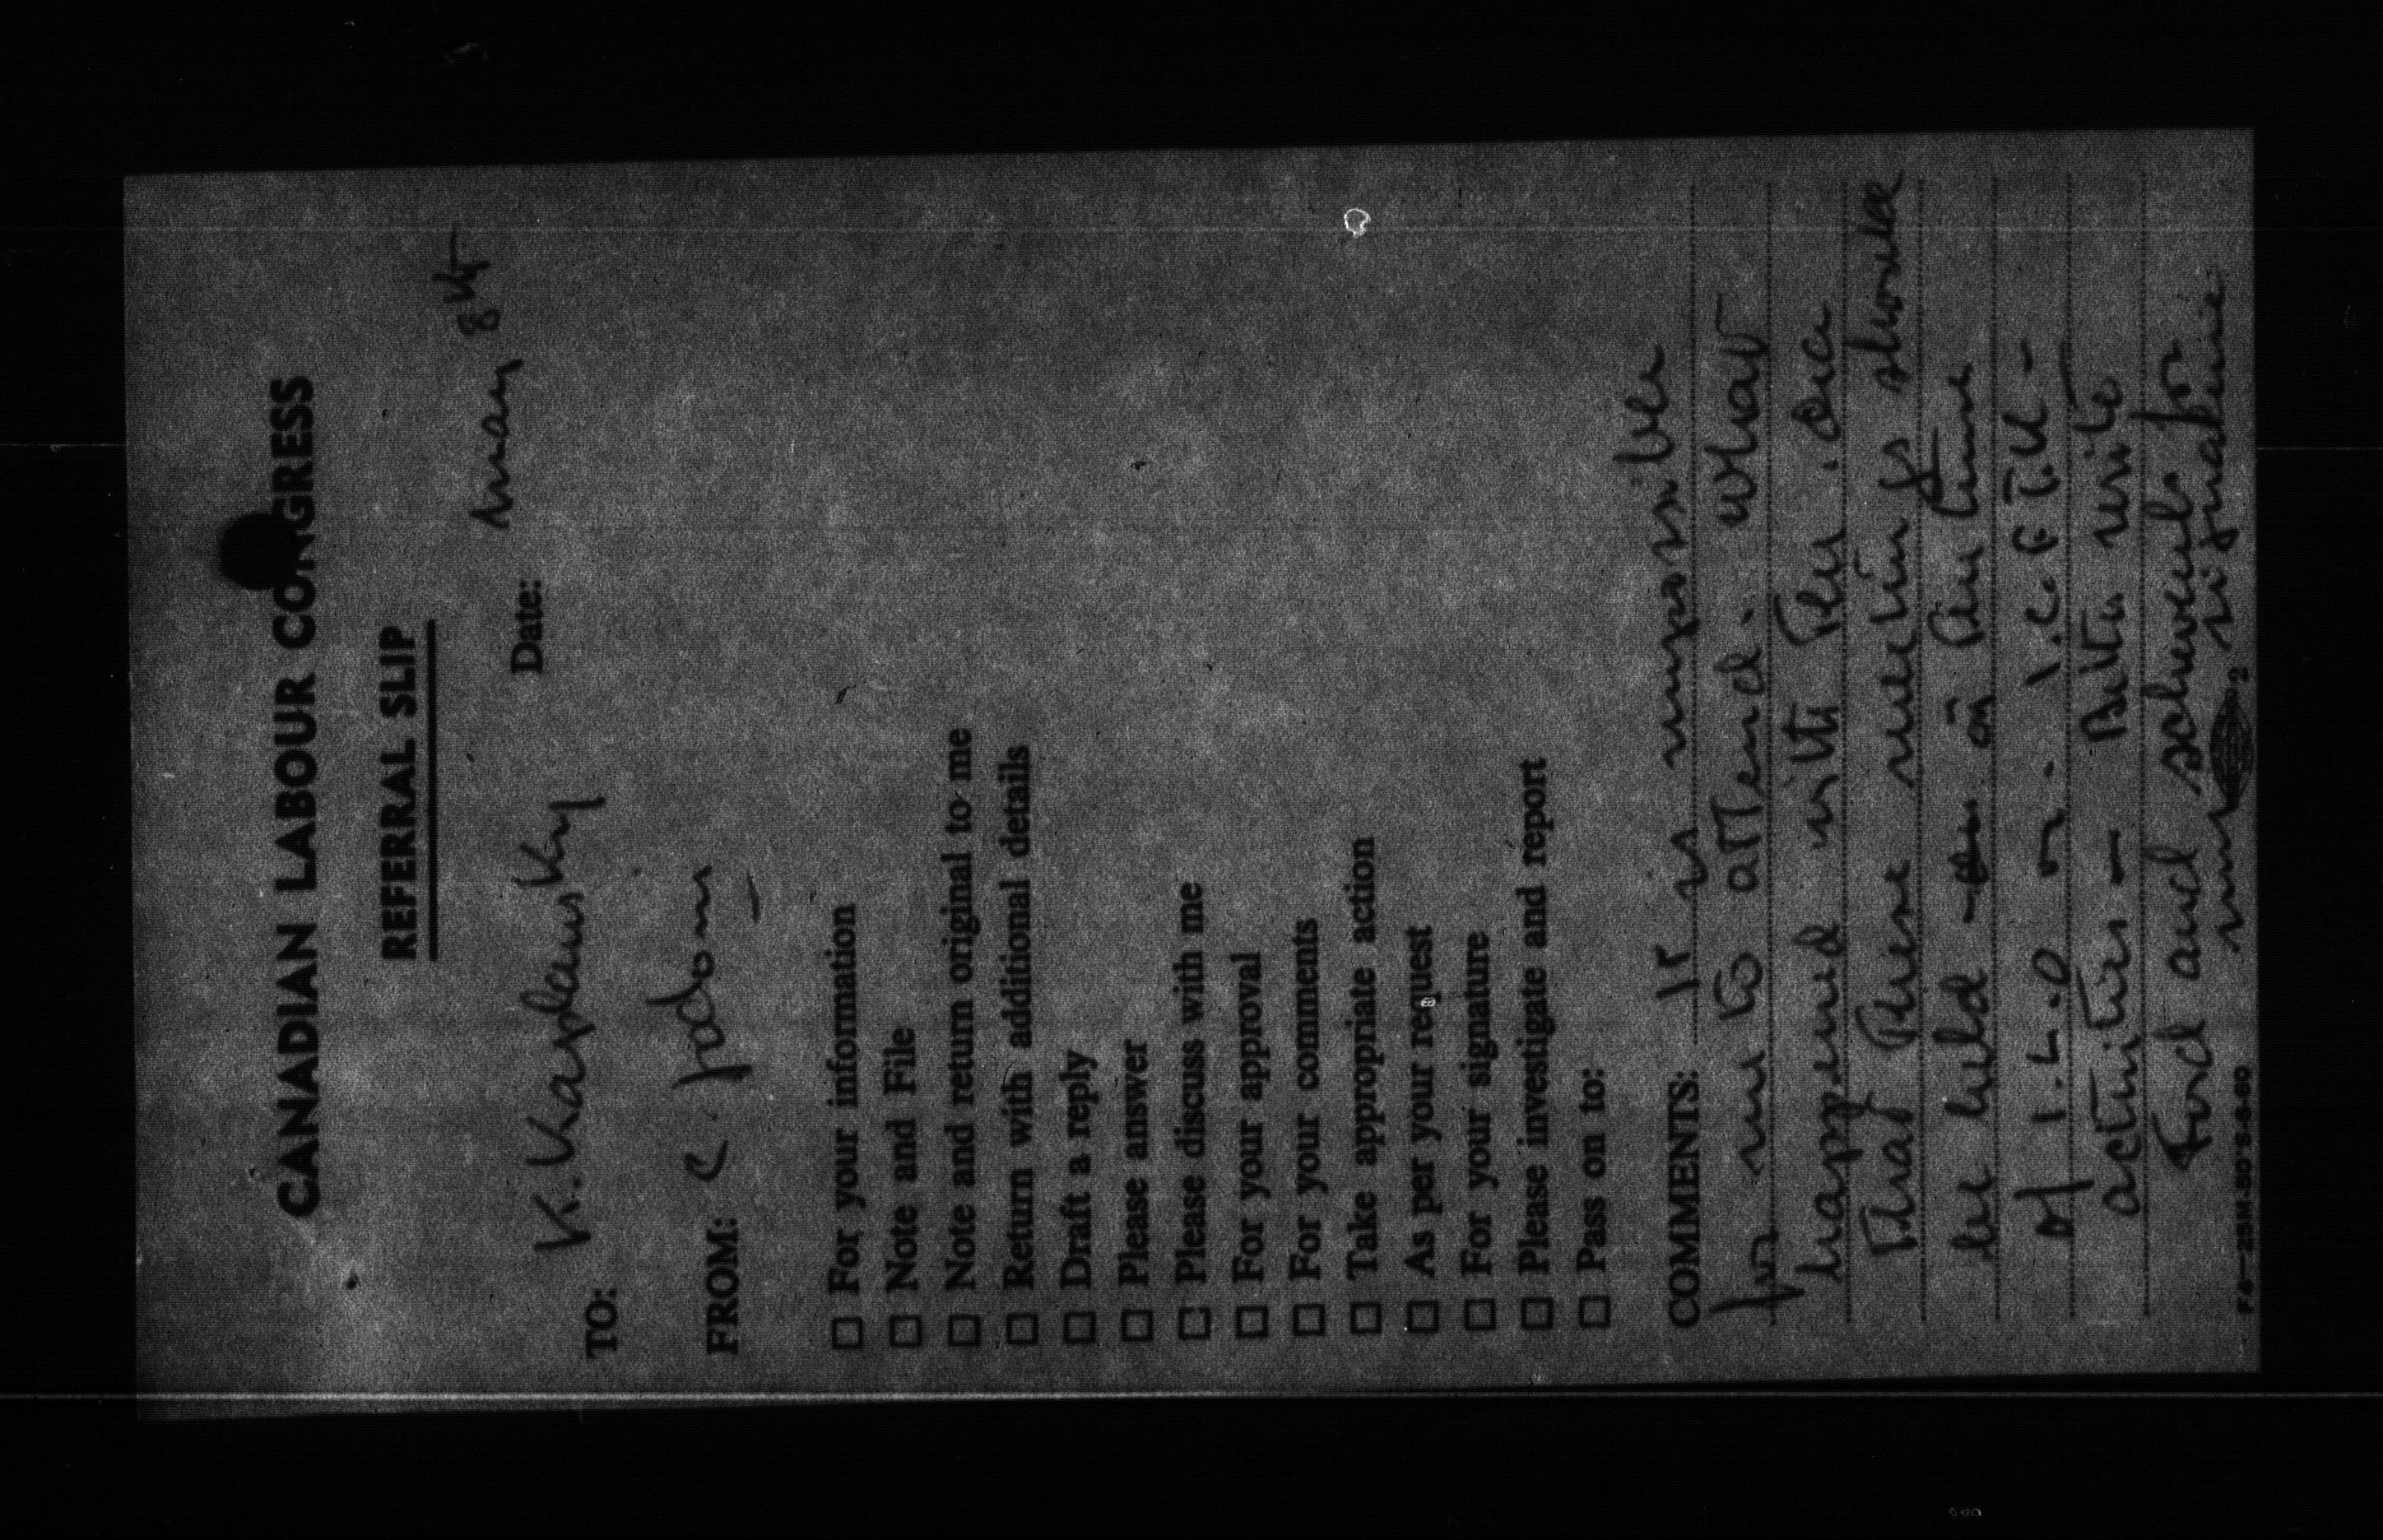 CANADIAN LABOUR CONGRESS
REFERRAL SLIP
Date: May 8th
TO: K. Kaplansky
FROM: C. Jodoin
☐ For your information
☐ Note and File
☐ Note and return original to me
☐ Return with additional details
☐ Draft a reply
☐ Please answer
☐ Please discuss with me
☐ For your approval
☐ For your comments
☐ Take appropriate action
☐ As per your request
☐ For your signature
☐ Please investigate and report
☐ Pass on to:
COMMENTS: It is impossible
for me to attend. What
happened with the idea
that these meetings should
be held on the time
of I.L.O or I.C.F.T.U -
activities — Better write
Ford and
my signature
F4—25M-50'S-8-60
2